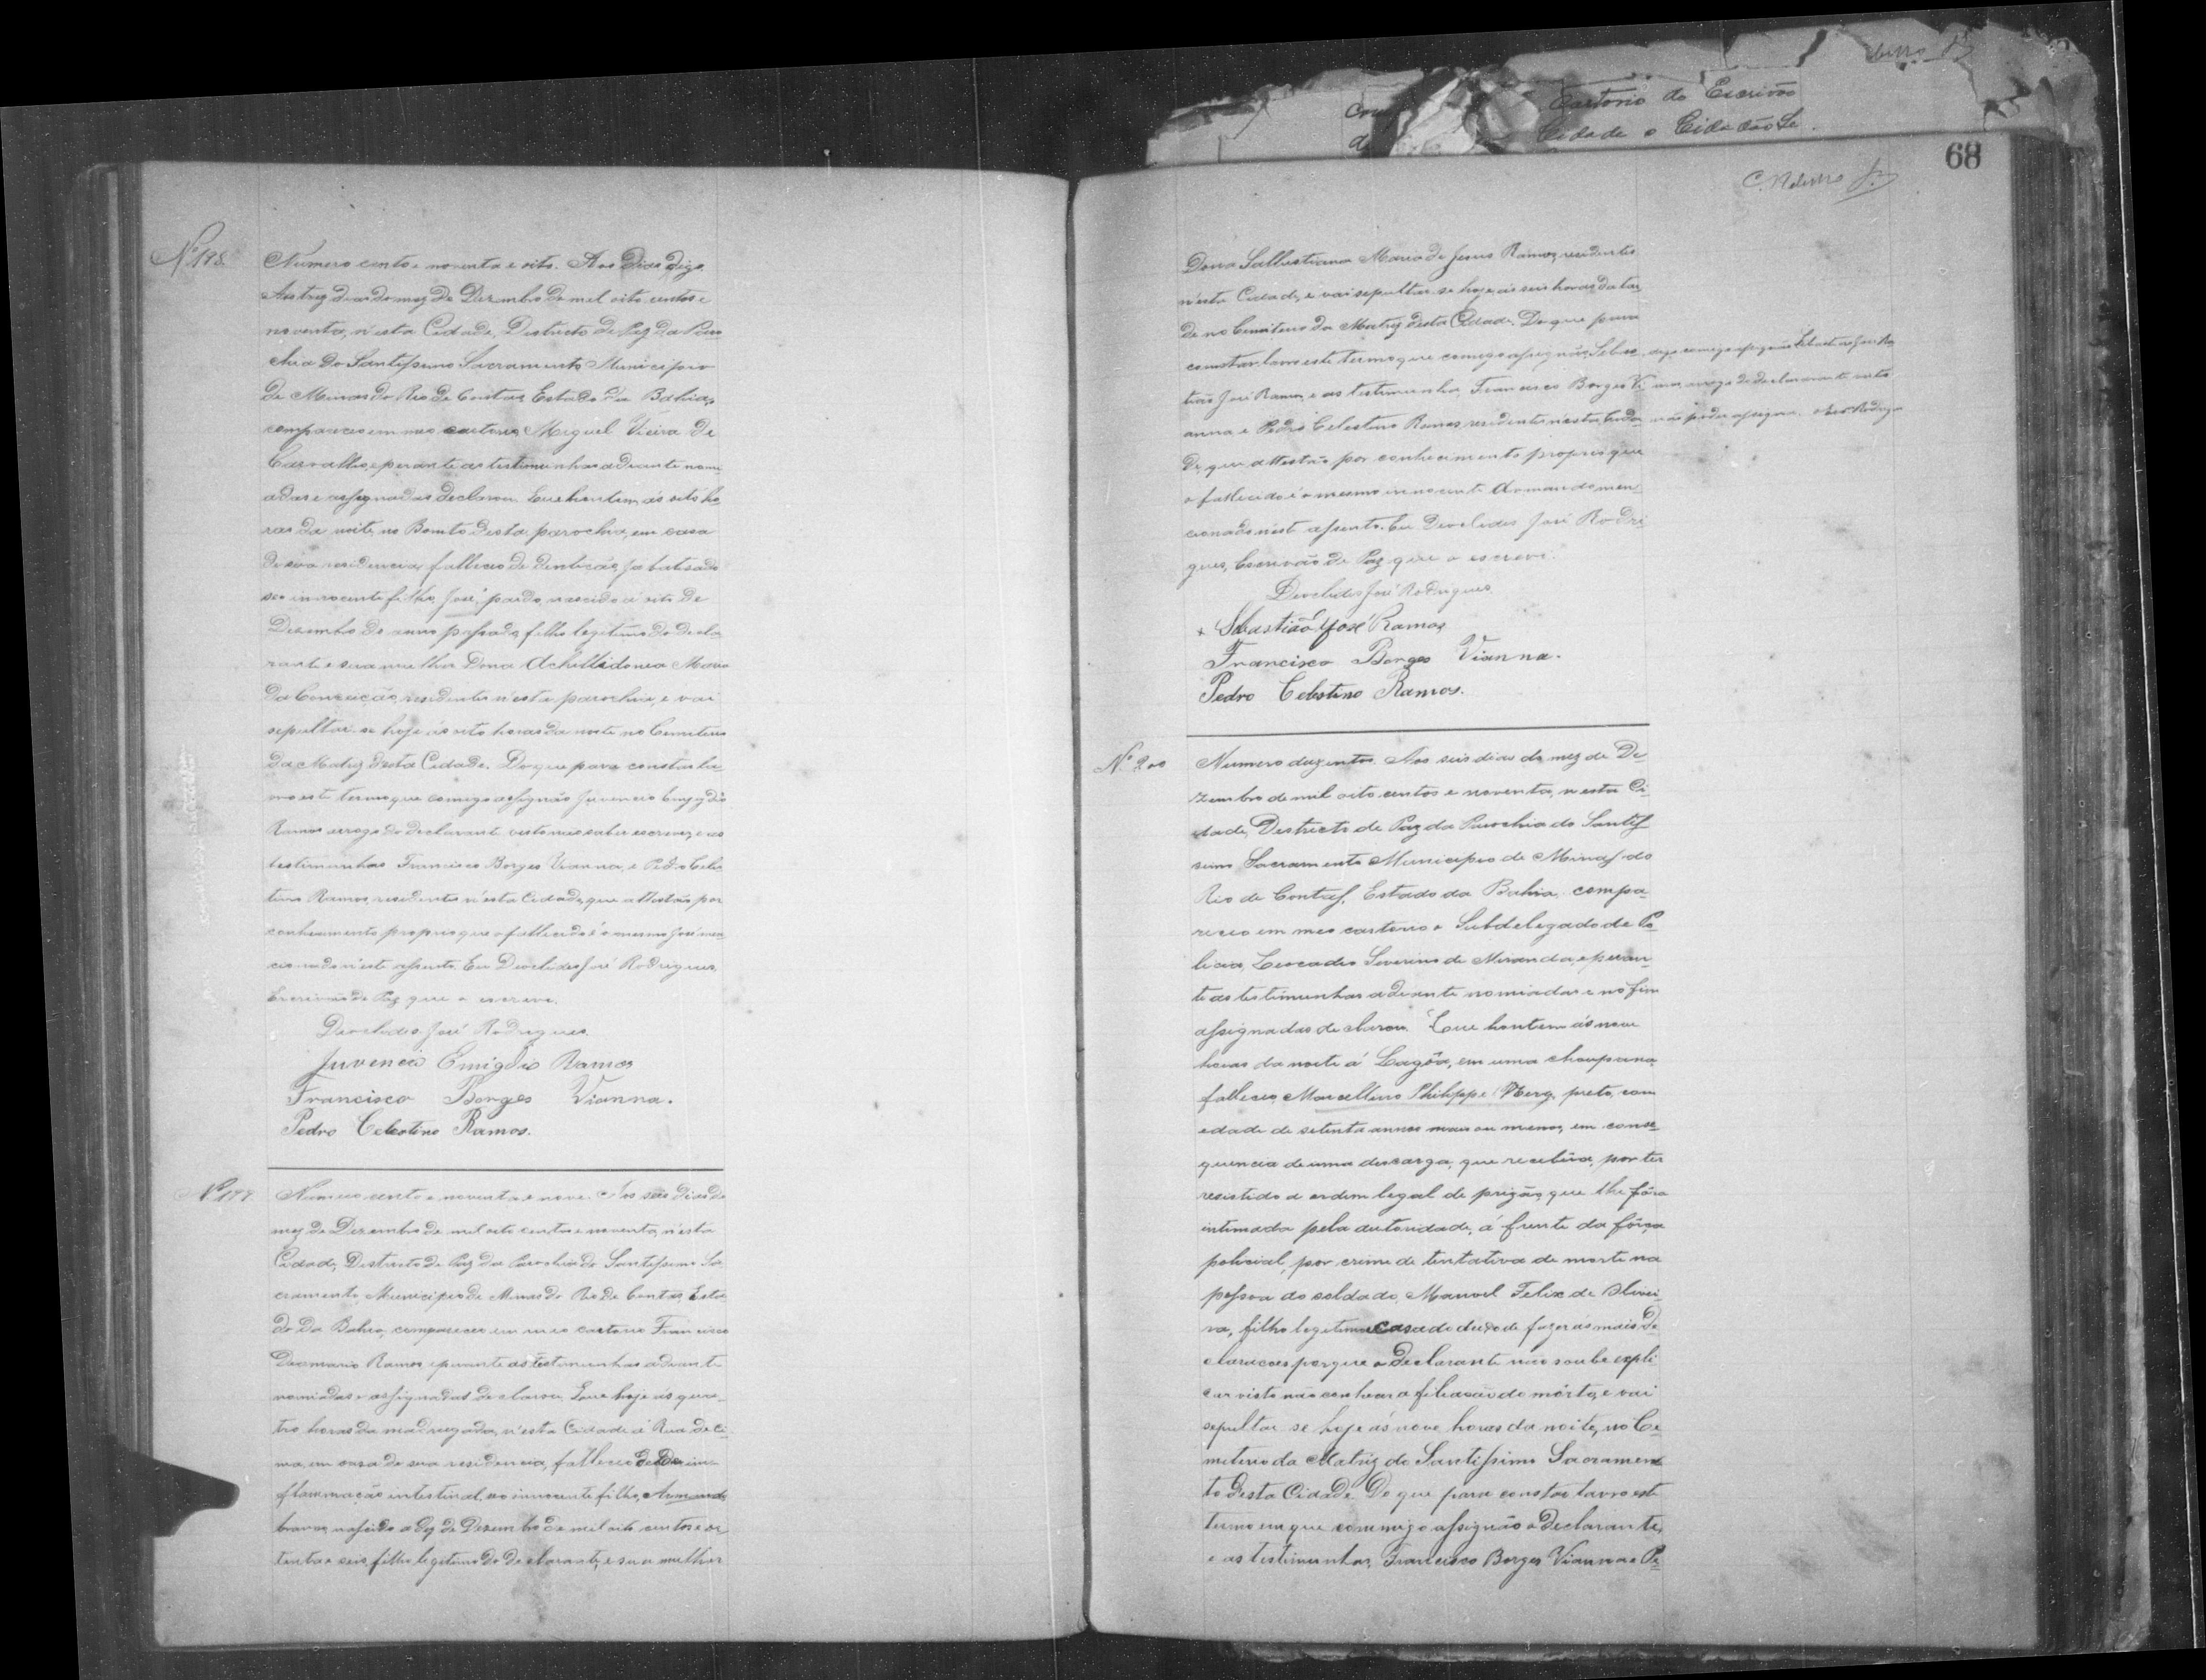 Nº 198.
Numero cento e noventa e oito. Aos Dias digo
Aos trez dias do mez de Dezembro de mil oito centos e
noventa, n'esta Cidade, Districto de Paz da Paro
chia do Santissimo Sacramento Municipio
de Minas do Rio de Contas, Estado da Bahia,
compareceo em meo cartorio Miguel Vieira de
Carvalho, e perante as testimunhas adiante nomi
adas e assignadas declarou. Que hontem, ás oito ho
ras da noite, no Bomito desta parochia, em casa
de sua residencia, falleceo de dentição, já batisado
seo innocente filho, José, pardo, nascido á oito de
Dezembro do anno passado, filho legitimo do decla
rante e sua mulher Dona Achillidonia Maria
da Conceição, residentes n'esta parochia, e vai
sepultar-se hoje ás oito horas da noite no Cemiterio
da Matriz desta Cidade. Do que para constar la
vro este termo que comigo assignão Juvencio Emigdio
Ramos arogo do declarante visto não saber escrever, e as
testimunhas Francisco Borges Vianna, e Pedro Celes
tino Ramos, residentes n'esta Cidade, que attestão por
conhecimento proprio que o fallecido é o mesmo José men
cionado n'este assento. Eu Deoclides José Rodrigues,
Escrivão de Paz que o escrevi.
Deoclides José Rodrigues
Juvencio Emigdio Ramos
Francisco Borges Vianna.
Pedro Celestino Ramos.
Nº 199.
Numero cento e noventa e nove. Aos seis dias do
mez de Dezembro de mil oito centos e noventa, n'esta
Cidade, Districto de Paz da Parochia do Santissimo Sa
cramento, Municipio de Minas do Rio de Contas, Esta
do da Bahia, compareceo em meo cartorio Francisco
Ramos, e perante as testimunhas adiante
nomiadas e assignadas declarou. Que hoje ás qua
tro horas da madrugada, n'esta Cidade á Rua de Ci
ma, em casa de sua residencia, falleceo de in
flammação intestinal, seo innocente filho, Armando
branco, nascido a dez de Dezembro de mil oito centos e oi
tenta e seis, filho legitimo do declarante, e sua mulher
68
Dona Sallustiana Maria de Jesus Ramos, residentes
n'esta Cidade, e vai sepultar-se hoje, ás seis horas da tar
de no Cemiterio da Matriz desta Cidade. Do que para
constar lavro este termo que comigo assignão, Sebas digo comigo assignão Sebastião José Ra
tião José Ramos, e as testimunhas, Francisco Borges Vi mos, arogo do declarante visto
anna e Pedro Celestino Ramos, residentes n'esta Cida não poder assignar.
de, que attestão por conhecimento proprio que
o fallecido é o mesmo innocente Armando men
cionado n'este assento. Eu Deoclides José Rodri
gues, Escrivão de Paz que o escrevi.
Deoclides José Rodrigues
x Sebastião José Ramos
Francisco Borges Vianna.
Pedro Celestino Ramos.
Nº 200
Numero duzentos. Aos seis dias do mez de De
zembro de mil oito centos e noventa, nesta Ci
dade, Districto de Paz da Parochia do Santis
simo Sacramento Municipio de Minas do
Rio de Contas, Estado da Bahia, compa
receo em meo cartorio o Subdelegado de Po
licia, Leocadio Severino de Miranda, e peran
te as testimunhas adiante nomiadas e no fim
assignadas declarou. Que hontem ás nove
horas da noite á Lagôa, em uma choupana,
falleceo, Marcellino Philippe preto, com
edade de setenta annos mais ou menos, em conse
quencia de uma descarga, que recebêra, por ter
resistido a ordem legal de prizão, que lhe fôra
intimada pela autoridade, á frente da fôrça
policial, por crime de tentativa de morte na
pessoa do soldado, Manoel Felix de Olivei
ra, filho legitimo casado deixo de fazer as mais de
claracoes porque o declarante não soube expli
car visto não conhecer a filiação do môrto, e vai
sepultar se hoje ás nove horas da noite, no Ce
miterio da Matriz do Santissimo Sacramen
to desta Cidade. Do que para constar lavro este
termo em que commigo assignão o declarante,
e as testimunhas, Francisco Borges Vianna e Pe